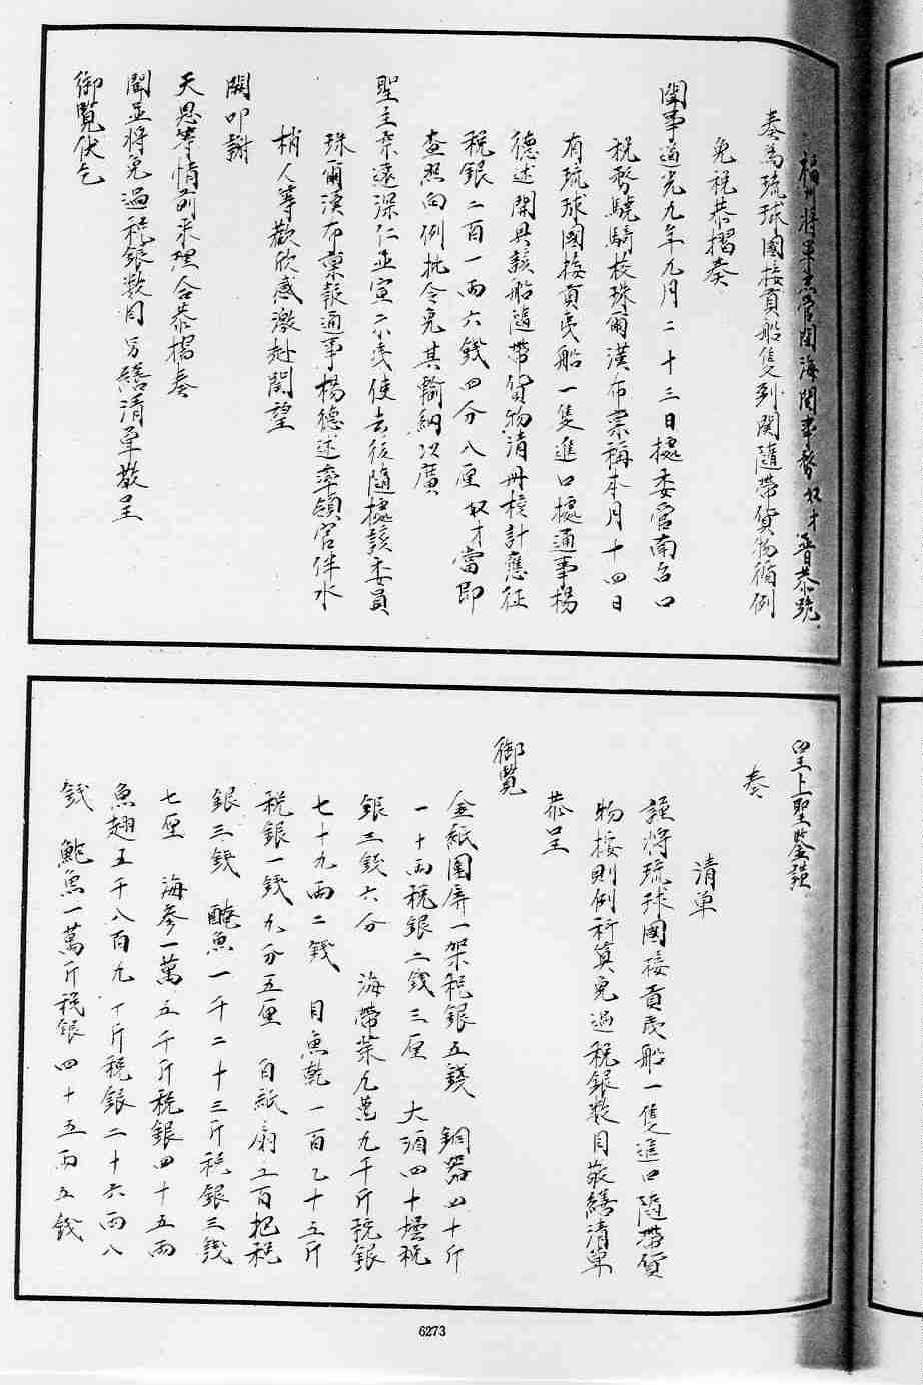 福州將軍兼管閩海關事務奴才晉恭跪
奏為琉球國接貢船隻到關隨帶貨物循例
免稅恭摺奏
聞事道光九年九月二十三日據委管南台口
稅務驍騎校珠爾漢布稟稱本月十四日
有琉球國接貢民船一隻進口據通事楊
德述開具該船隨帶貨物清冊核計應征
稅銀二百一兩六錢四分八厘奴才當即
查照向例批令免其輸納以廣
聖主柔遠深仁並宣示夷使去後隨據該委員
珠爾漢布稟報通事楊德述率領官伴水
梢人等歡欣感激赴關望
闕叩謝
天恩等情前來理合恭摺奏
聞並將免過稅銀數目另繕清單敬呈
御覽伏乞
皇上聖鑒謹
奏
清單
謹將琉球國接貢民船一隻進口隨帶貨
物按則例科算免過稅銀數目敬繕清單
恭呈
御覽
金紙圍屏一架稅銀五錢 銅器四十斤
一十兩稅銀二錢三厘 大酒四十壜稅
銀三錢六分 海帶菜九萬九千斤稅銀
七十九兩二錢 目魚乾一百七十五斤
稅銀一錢九分五厘 白紙扇五百把稅
銀三錢 醃魚一千二十三斤稅銀三錢
七厘 海參一萬五千斤稅銀四十五兩
魚翅五千八百九十斤稅銀二十六兩八
錢 鮑魚一萬斤稅銀四十五兩五錢
6273